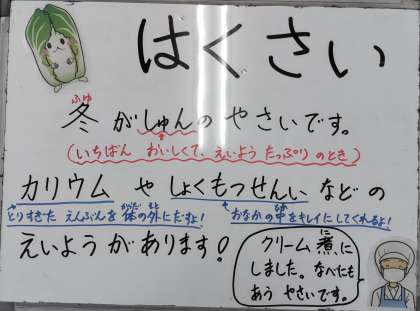 はくさい
冬がしゅんのやさいです。
ふゆ
(いちばん おいしくて、えいよう たっぷり のとき)
カリウム や しょくもつせんい などの
とりすぎた えんぶんを 体の外にだすよ!
からだ そと
おなかの中をキレイにしてくれるよ!
なか
えいようがあります!
クリーム煮に
に
しました。なべにも
あう やさいです。